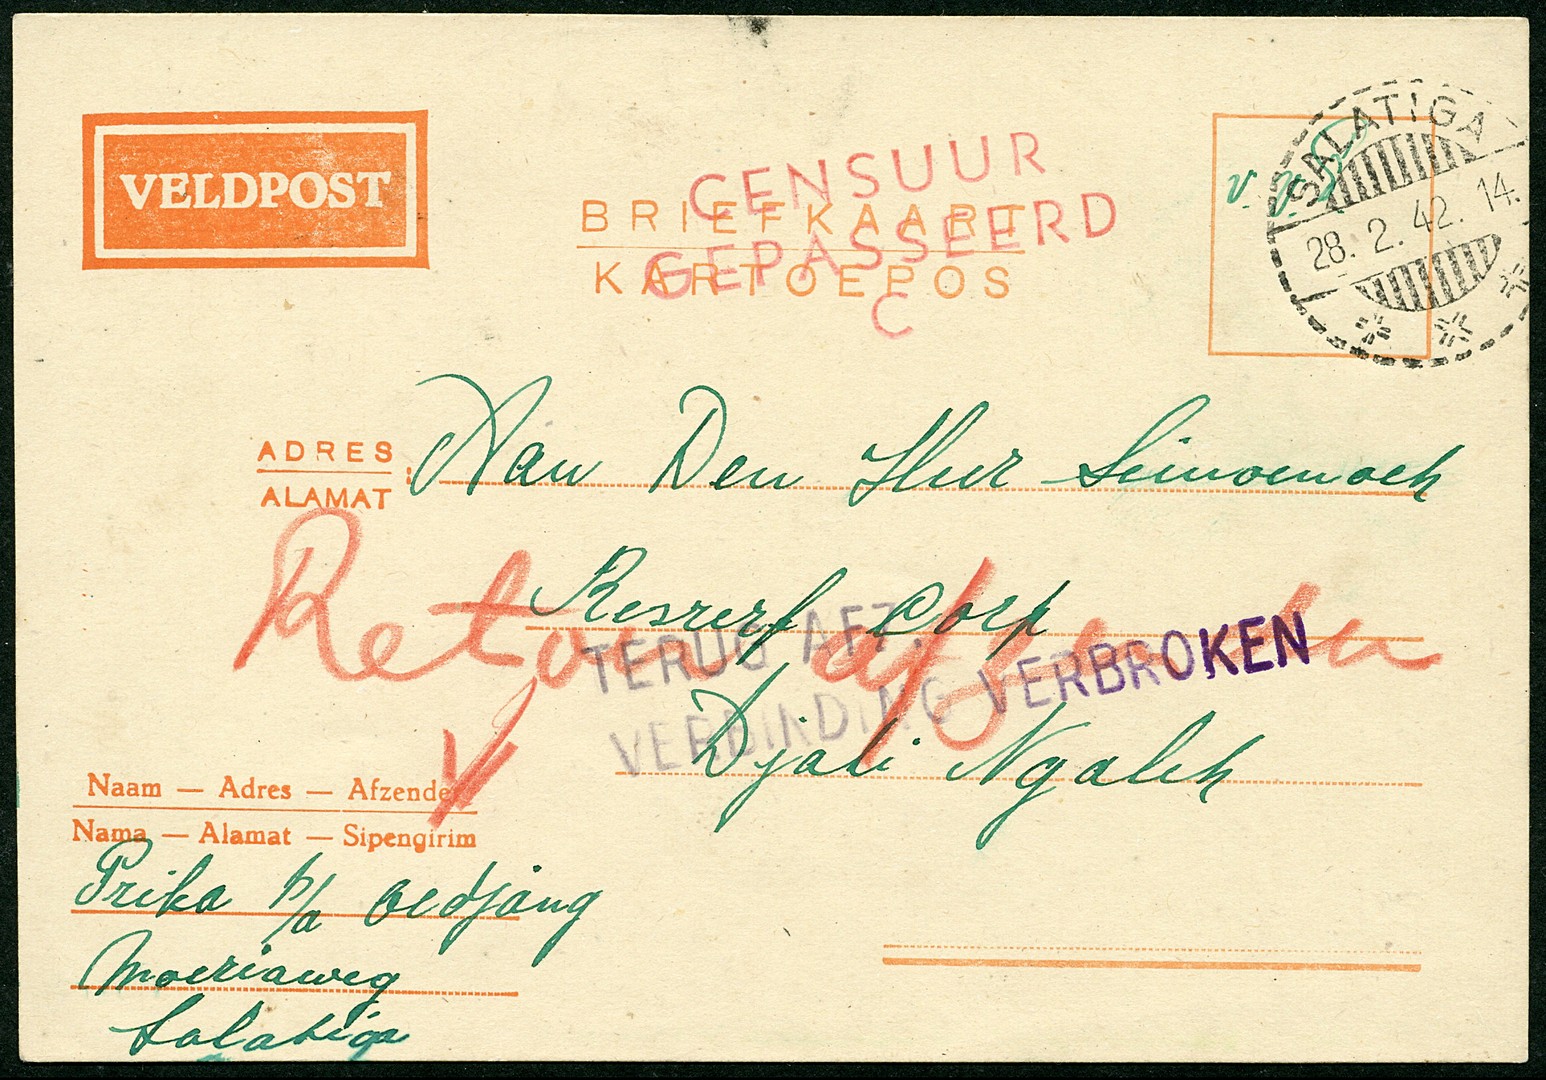 VELDPOST
CENSUUR
GEPASSEERD
C
BRIEFKAART
KARTOEPOS
v. v.
SALATIGA
28. 2. 42. 14.
ADRES
ALAMAT
Aan Den Heer Seimoenoeh
Reserf Corp
Djali Ngaleh
Retour afzender
TERUG AFZ.
VERBINDING VERBROKEN
Naam — Adres — Afzender
Nama — Alamat — Sipengirim
Prika p/a Oedjang
Moeriaweg
Salatiga